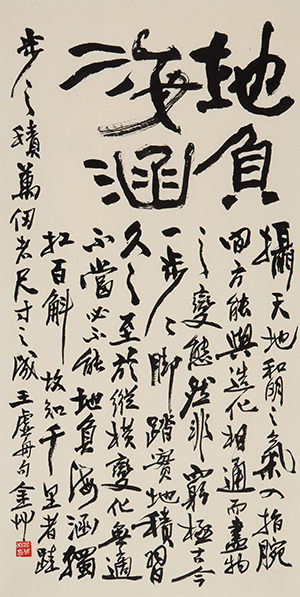 地負
海涵
攝天地和明之氣入指腕
間方能與造化相通而盡物
之變態然非窮極古今
一步〻腳踏實地積習
久之至於縱橫變化無適
不當必不能地負海涵獨
扛百斛故知千里者跬
步之積萬仞者尺寸之成王虛舟句